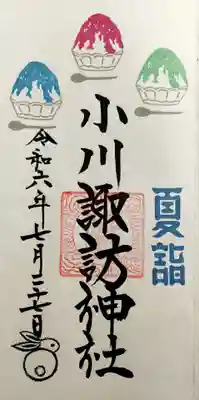 夏詣
小川諏訪神社
令和六年七月二十七日